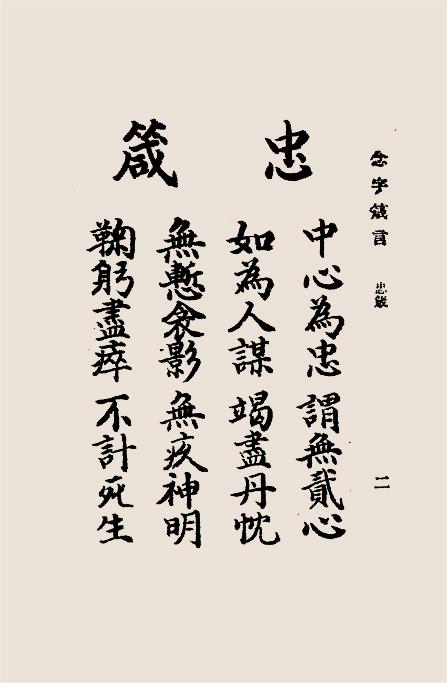 念字箴言 忠箴 二
忠箴
中心為忠 謂無貳心
如為人謀 竭盡丹忱
無慙衾影 無疚神明
鞠躬盡瘁 不計死生